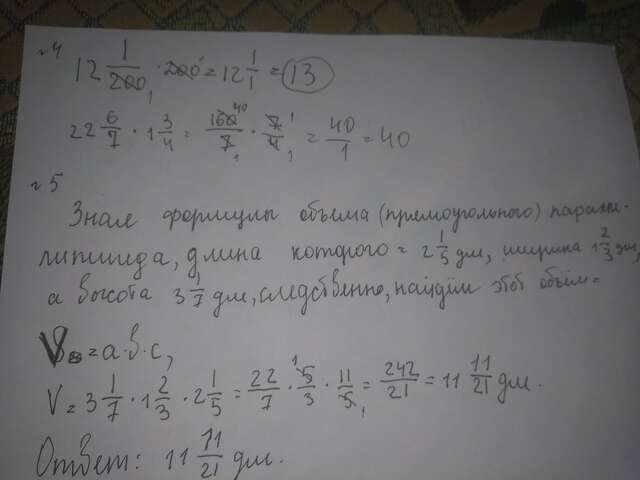 №4
12 1/200 · 200 = 12 1/1 = 13
22 6/7 · 1 3/4 = 160/7 · 7/4 = 40/1 = 40
№5
Зная формулы объема (прямоугольного) паралле-
липипеда, длина которого = 2 1/5 дм, ширина 1 2/3 дм,
а высота 3 1/7 дм, следственно, найдём этот объём =
V = a·b·c,
V = 3 1/7 · 1 2/3 · 2 1/5 = 22/7 · 5/3 · 11/5 = 242/21 = 11 11/21 дм.
Ответ: 11 11/21 дм.